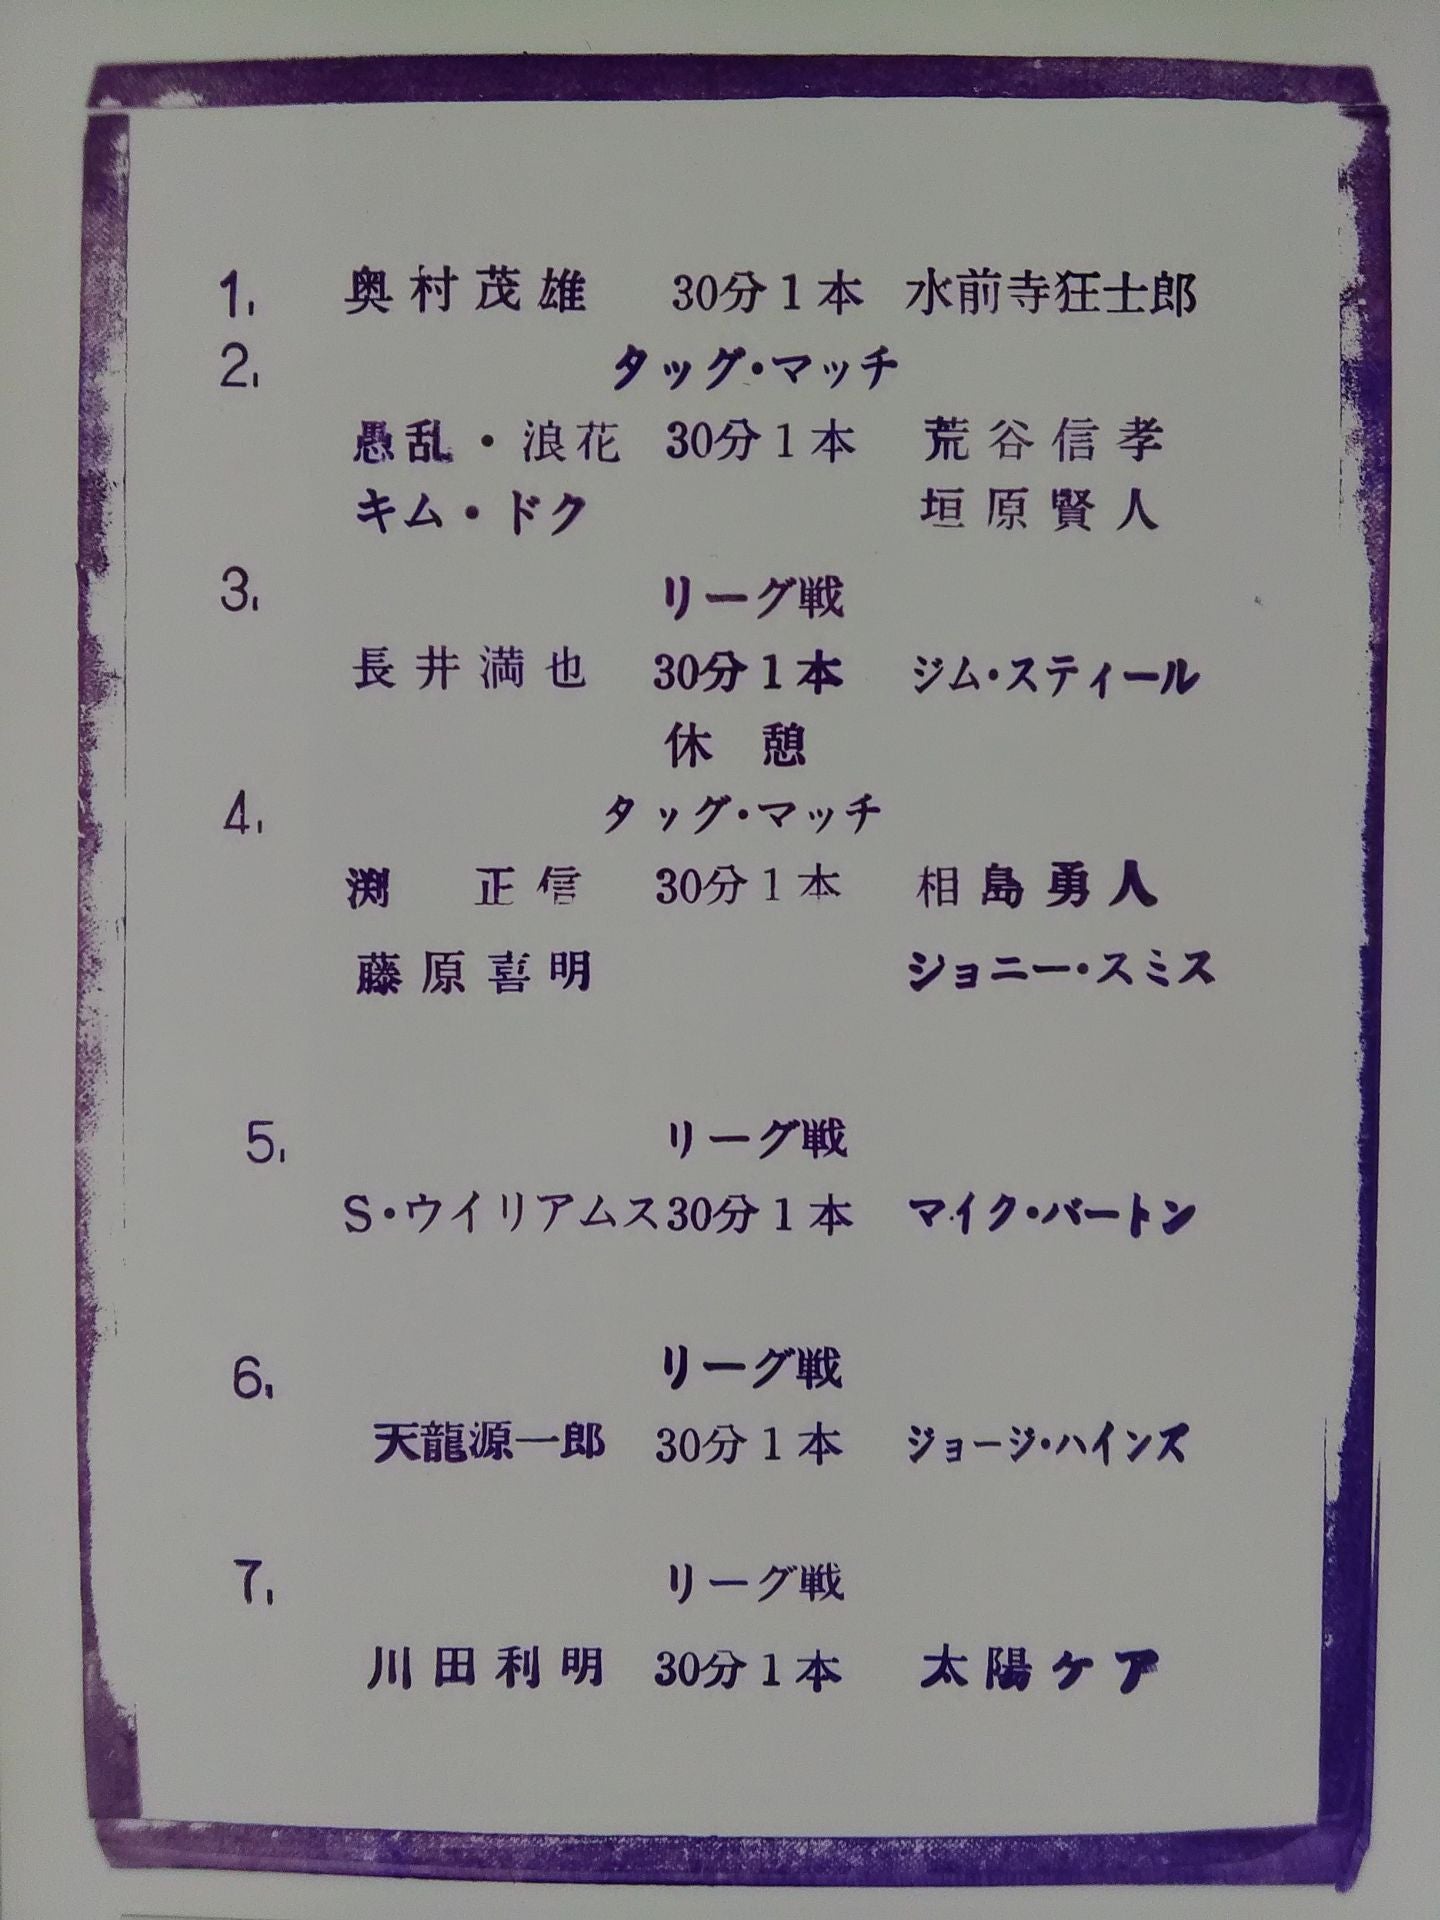 1. 奥村茂雄 30分1本 水前寺狂士郎
2. タッグ・マッチ
愚乱・浪花 30分1本 荒谷信孝
キム・ドク 垣原賢人
3. リーグ戦
長井満也 30分1本 ジム・スティール
休憩
4. タッグ・マッチ
渕 正信 30分1本 相島勇人
藤原喜明 ジョニー・スミス
5. リーグ戦
S・ウイリアムス 30分1本 マイク・バートン
6. リーグ戦
天龍源一郎 30分1本 ジョージ・ハインズ
7. リーグ戦
川田利明 30分1本 太陽ケア